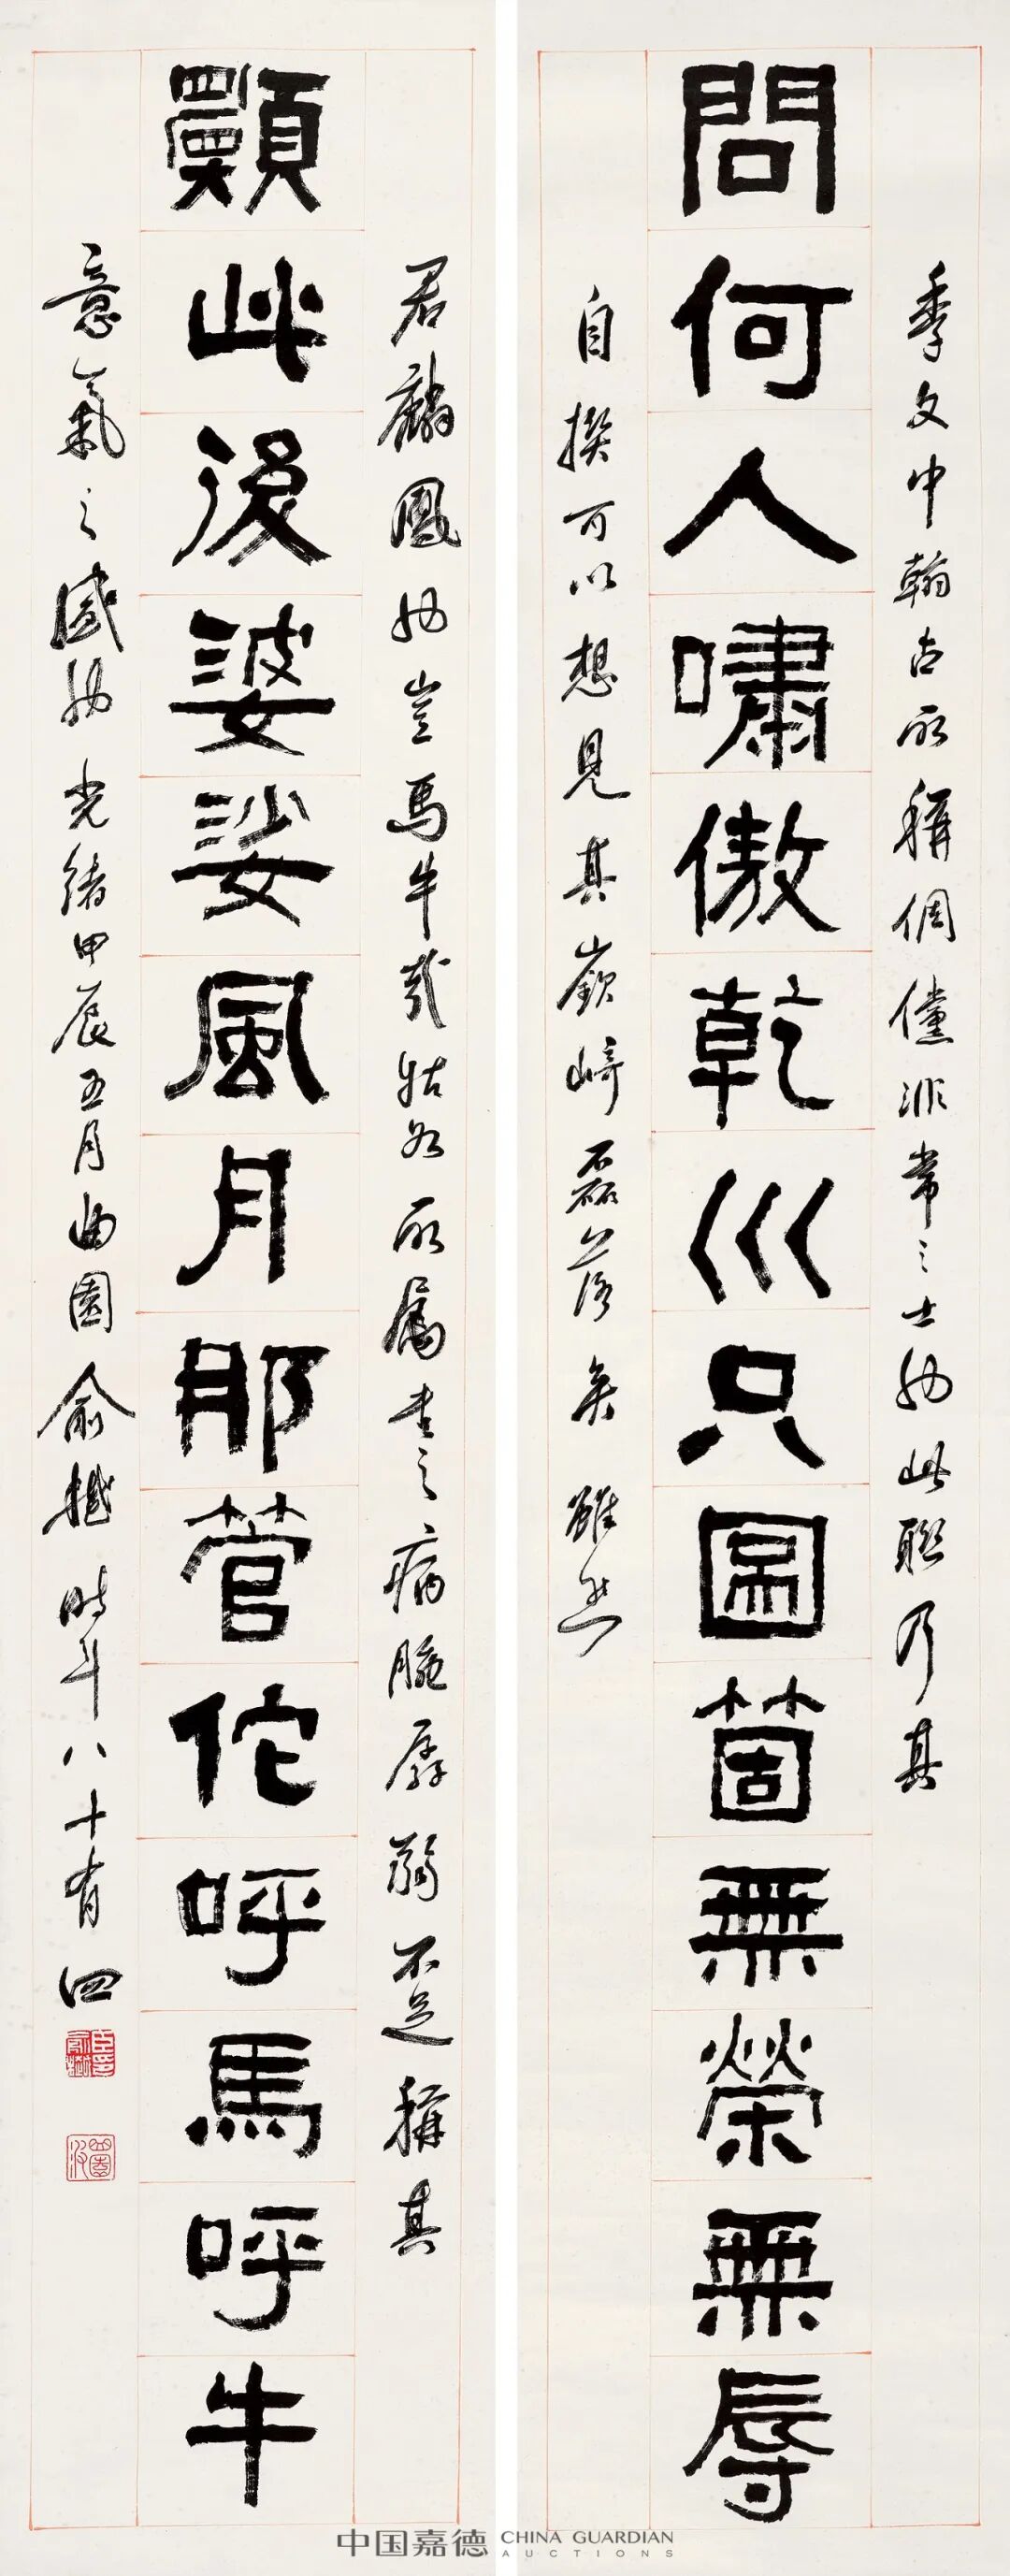 季文中翰古所稱倜儻非常之士也此聯乃其
問何人嘯傲乾巛只圖箇無榮無辱
自撰可以想見其嶔崎磊落矣雖然
君麟鳳也豈馬牛哉姑如所屬書之病腕孱弱不足稱其
願此後婆娑風月那管佗呼馬呼牛
意氣之盛也光緒甲辰五月曲園俞樾時年八十有四
中国嘉德 CHINA GUARDIAN AUCTIONS